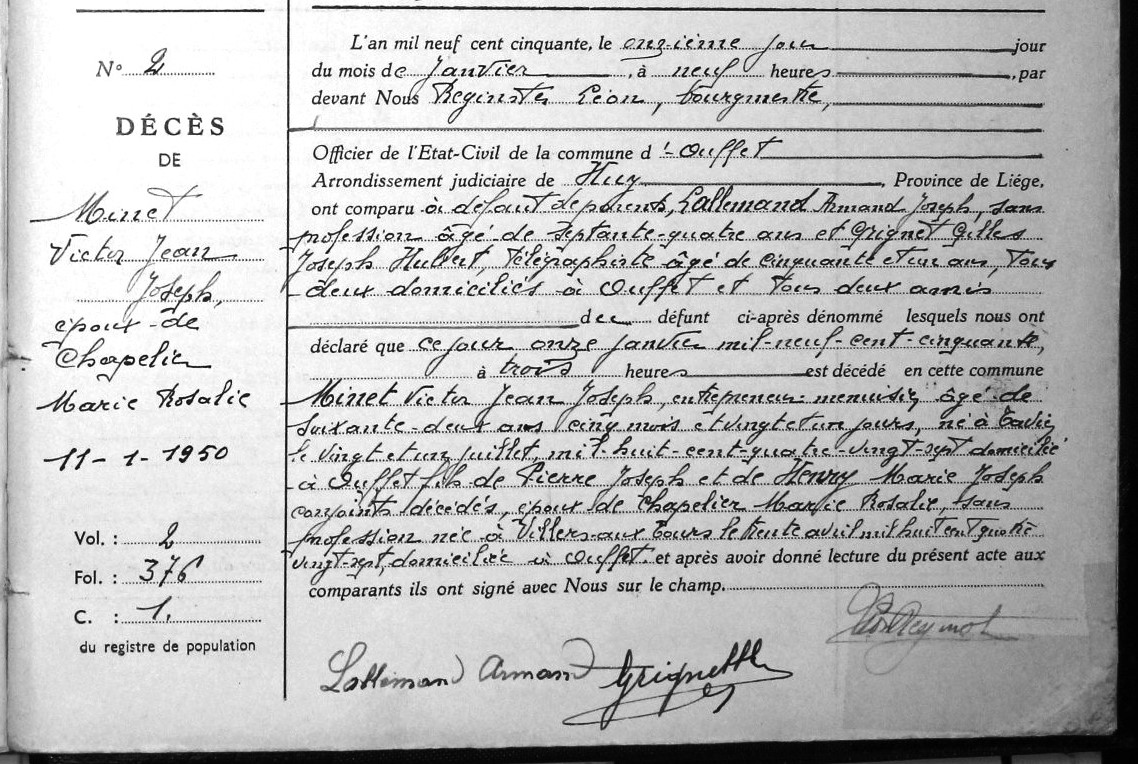 N° 2
DÉCÈS
DE
Minet
Victor Jean
Joseph,
époux de
Chapelier
Marie Rosalie
11-1-1950
Vol. : 2
Fol. : 376
C. : 1.
du registre de population
L'an mil neuf cent cinquante, le onzième jour jour
du mois de Janvier, à neuf heures, par
devant Nous Reginster Léon, bourgmestre,
Officier de l'Etat-Civil de la commune d'Ouffet
Arrondissement judiciaire de Huy, Province de Liége,
ont comparu à défaut de parents, Lallemand Armand Joseph, sans
profession âgé de septante-quatre ans et Grignet Gilles
Joseph Hubert, Télégraphiste âgé de cinquante et un ans, tous
deux domiciliés à Ouffet et tous deux amis
du défunt ci-après dénommé lesquels nous ont
déclaré que ce jour onze janvier mil-neuf-cent-cinquante,
à trois heures est décédé en cette commune
Minet Victor Jean Joseph, entrepreneur menuisier âgé de
soixante-deux ans cinq mois et vingt et un jours, né à Tavier
le vingt et un juillet, mil-huit-cent-quatre-vingt-sept domicilié
à Ouffet fils de Pierre Joseph et de Henry Marie Joseph
conjoints décédés, époux de Chapelier Marie Rosalie, sans
profession née à Villers-aux-Tours le trente avril mil huit cent quatre
vingt-sept, domiciliée à Ouffet. et après avoir donné lecture du présent acte aux
comparants ils ont signé avec Nous sur le champ.
Lallemand Armand Grignet